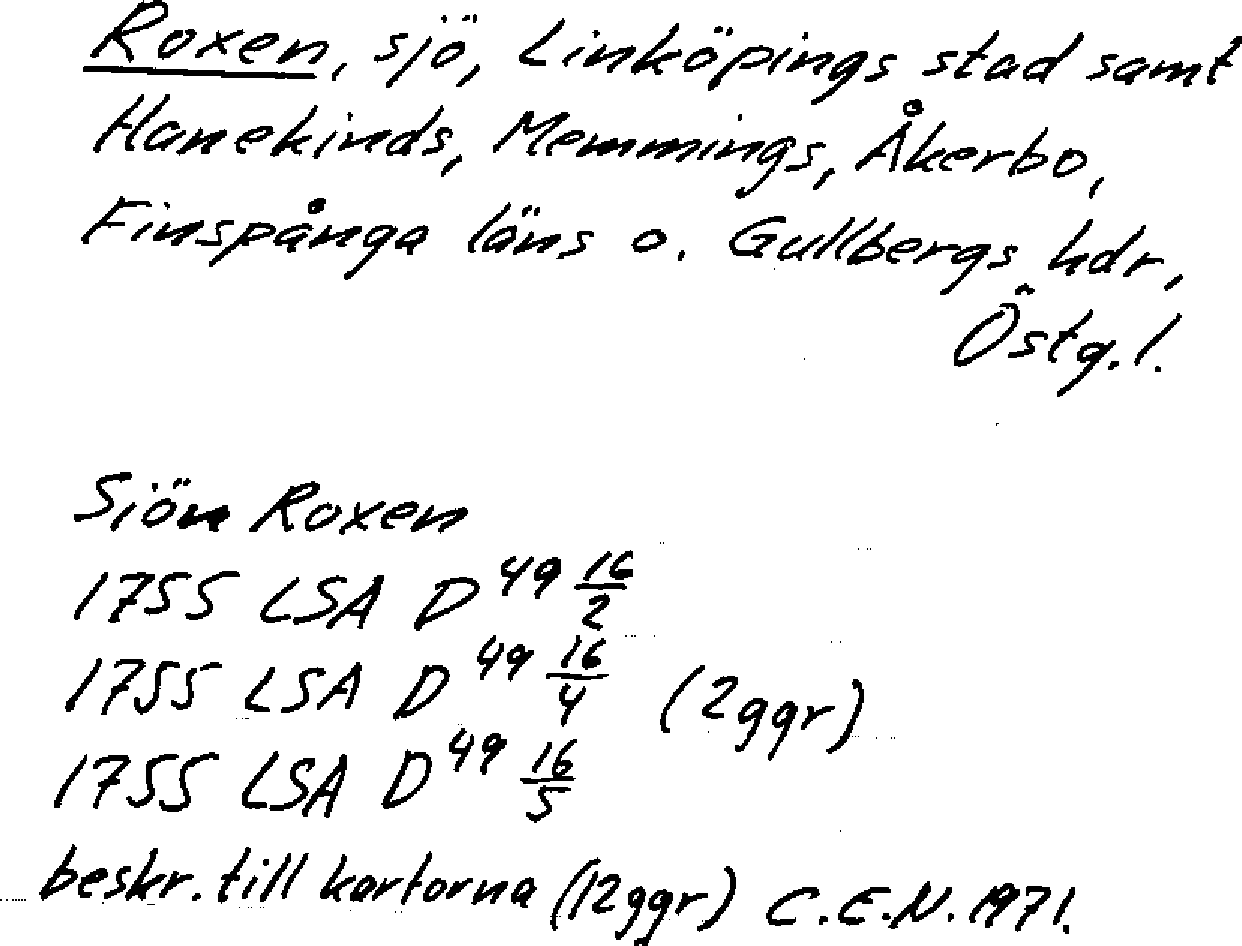 Roxen, sjö, Linköpings stad samt
Hanekinds, Memmings, Åkerbo,
Finspånga läns o. Gullbergs hdr,
Östg.l.
Sjön Roxen
1755 LSA D 49 16/2
1755 LSA D 49 16/4 (2ggr)
1755 LSA D 49 16/5
beskr. till kartorna (12ggr) C.E.N. 1971.